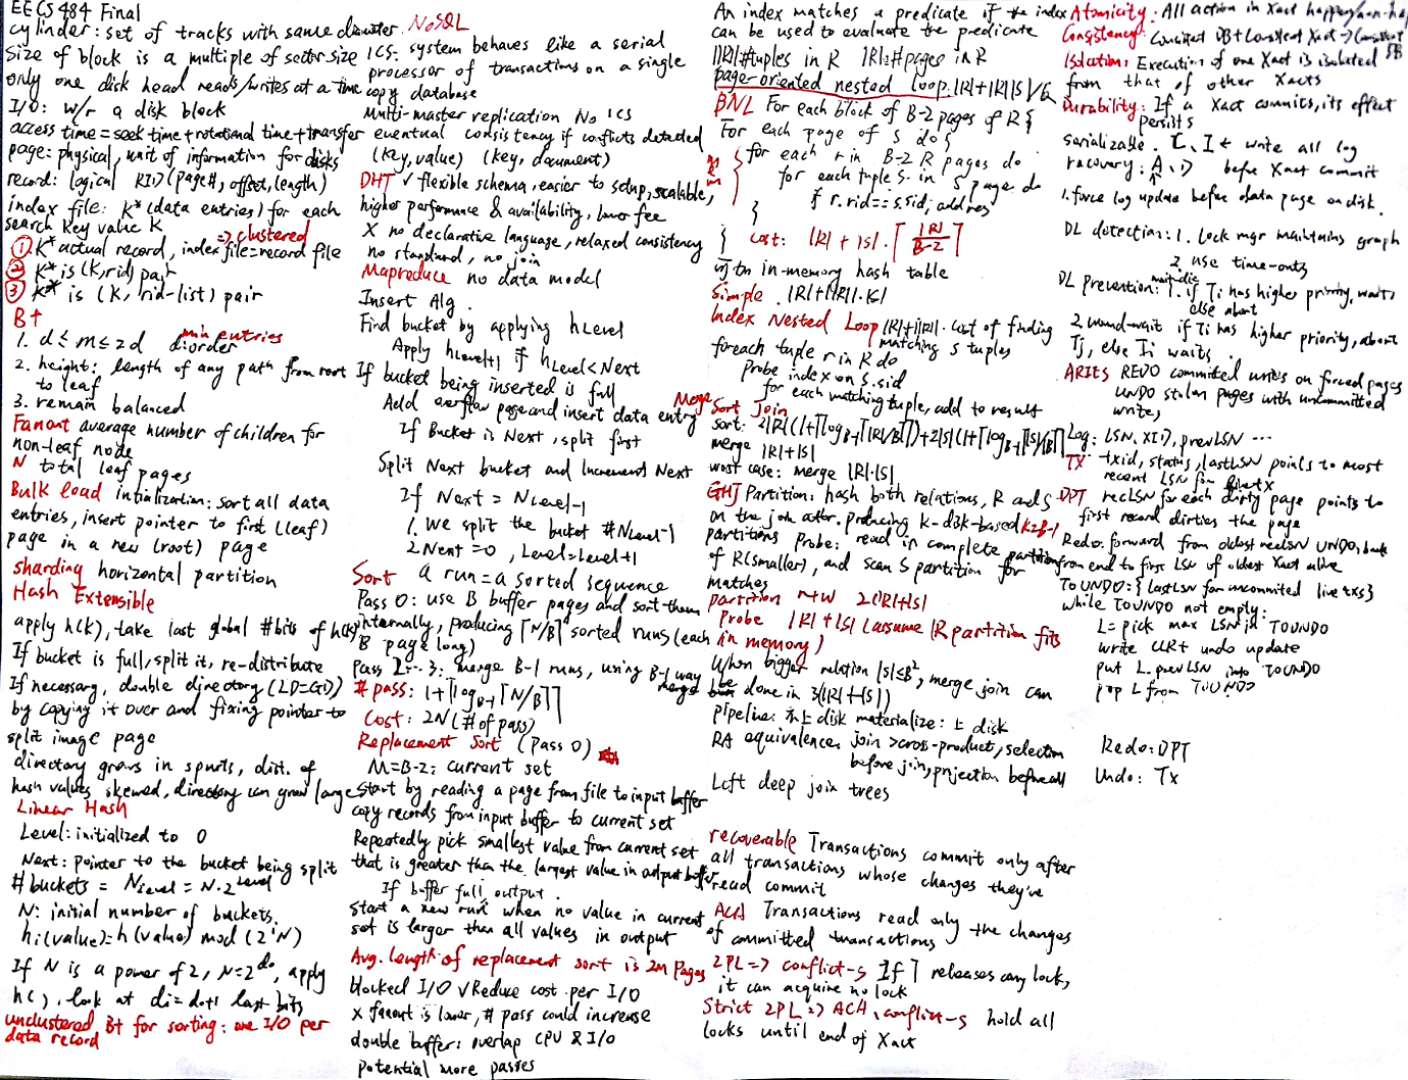 EECS 484 Final
cylinder: set of tracks with same diameter
Size of block is a multiple of sector size
only one disk head reads/writes at a time
I/O: w/r a disk block
access time = seek time + rotational time + transfer
page: physical, unit of information for disks
record: logical RID (page#, offset, length)
index file: K* (data entries) for each
search key value K
=> clustered
① K* actual record, index file = record file
② K* is (K, rid) pair
③ K* is (K, rid-list) pair
B+
1. d ≤ m ≤ 2d d: order
min entries
2. height: length of any path from root
to leaf
3. remain balanced
Fanout average number of children for
non-leaf node
N total leaf pages
Bulk load initialization: sort all data
entries, insert pointer to first (leaf)
page in a new (root) page
sharding horizontal partition
Hash Extensible
apply h(k), take last global #bits of h(k)
If bucket is full, split it, re-distribute
If necessary, double directory (LD=GD)
by copying it over and fixing pointer to
split image page
directory grows in spurts, dist. of
hash values skewed, directory can grow large
Linear Hash
Level: initialized to 0
Next: pointer to the bucket being split
# buckets = N_Level = N·2^Level
N: initial number of buckets
hi(value) = h(value) mod (2^i N)
If N is a power of 2, N=2^d0, apply
h(), look at di = d0+i last bits
unclustered B+ for sorting: one I/O per
data record
NoSQL
ICS: system behaves like a serial
processor of transactions on a single
copy database
Multi-master replication No ICS
eventual consistency if conflicts detected
(key, value) (key, document)
DHT ✓ flexible schema, easier to setup, scalable,
higher performance & availability, lower fee
X no declarative language, relaxed consistency
no standard, no join
Mapreduce no data model
Insert Alg.
Find bucket by applying hLevel
Apply hLevel+1 if hLevel < Next
If bucket being inserted is full
Add overflow page and insert data entry
If Bucket is Next, split first
Split Next bucket and Increment Next
If Next = NLevel-1
1. We split the bucket #NLevel-1
2. Next = 0, Level = Level+1
Sort a run = a sorted sequence
Pass 0: use B buffer pages and sort them
internally, producing ⌈N/B⌉ sorted runs (each
B page long)
Pass 2... 3: merge B-1 runs, using B-1 way
merge
# pass: 1+⌈log_B-1 ⌈N/B⌉⌉
Cost: 2N(# of pass)
Replacement Sort (Pass 0)
M = B-2: current set
Start by reading a page from file to input buffer
copy records from input buffer to current set
Repeatedly pick smallest value from current set
that is greater than the largest value in output buffer
If buffer full, output.
Start a new run when no value in current
set is larger than all values in output
Avg. length of replacement sort is 2M Pages
blocked I/O ✓ Reduce cost per I/O
x fanout is lower, # pass could increase
double buffer: overlap CPU & I/O
potential more passes
An index matches a predicate if the index
can be used to evaluate the predicate
||R|| #tuples in R |R|: #pages in R
page-oriented nested loop: |R|+|R||S|
BNL For each block of B-2 pages of R {
For each page of S do {
for each r in B-2 R pages do
for each tuple s in S page do
if r.rid == s.sid, add res
}
} cost: |R| + |S| · ⌈|R|/B-2⌉
in-memory hash table
Simple |R|+||R||·|S|
Index Nested Loop |R|+||R||· cost of finding
matching S tuples
foreach tuple r in R do
probe index on S.sid
for each matching tuple, add to result
Merge
Sort Join
sort: 2|R|(1+⌈log_B-1⌈|R|/B⌉⌉)+2|S|(1+⌈log_B-1⌈|S|/B⌉⌉)
merge |R|+|S|
worst case: merge |R|·|S|
GHJ Partition: hash both relations, R and S
on the join attr. producing k-disk-based k=B-1
partitions Probe: read in complete partition
of R(smaller), and scan S partition for
matches
partition r+w 2(|R|+|S|)
Probe |R|+|S| (assume R partition fits
in memory)
When bigger relation |S|≤B², merge join can
be done in 3(|R|+|S|)
pipeline: 不上disk materialize: 上disk
RA equivalence: join > cross-product, selection
before join, projection before all
Left deep join trees
recoverable Transactions commit only after
all transactions whose changes they've
read commit
ACA Transactions read only the changes
of committed transactions
2PL => conflict-s If T releases any lock,
it can acquire no lock
Strict 2PL => ACA, conflict-s hold all
locks until end of Xact
Atomicity: All action in Xact happen/non-ha
Consistency: Consistent DB + Consistent Xact -> Consistent
DB
Isolation: Execution of one Xact is isolated
from that of other Xacts
Durability: If a Xact commits, its effect
persists
serializable. C, I ← write all log
recovery: A, D before Xact commit
1. force log update before data page on disk.
DL detection: 1. Lock mgr maintains graph
2. use time-outs
DL prevention: 1. wait-die if Ti has higher priority, waits
else abort
2. wound-wait if Ti has higher priority, abort
Tj, else Ti waits.
ARIES REDO committed writes on forced pages
UNDO stolen pages with uncommitted
writes
Log: LSN, XID, prevLSN ...
TX txid, status, lastLSN points to most
recent LSN for live tx
DPT recLSN for each dirty page points to
first record dirties the page
Redo: forward from oldest recLSN UNDO: back
from end to first LSN of oldest Xact alive
ToUNDO: {lastLSN for uncommited live txs}
while TOUNDO not empty:
L = pick max LSN in TOUNDO
write CLR + undo update
put L.prevLSN into TOUNDO
pop L from TOUNDO
Redo: DPT
Undo: Tx